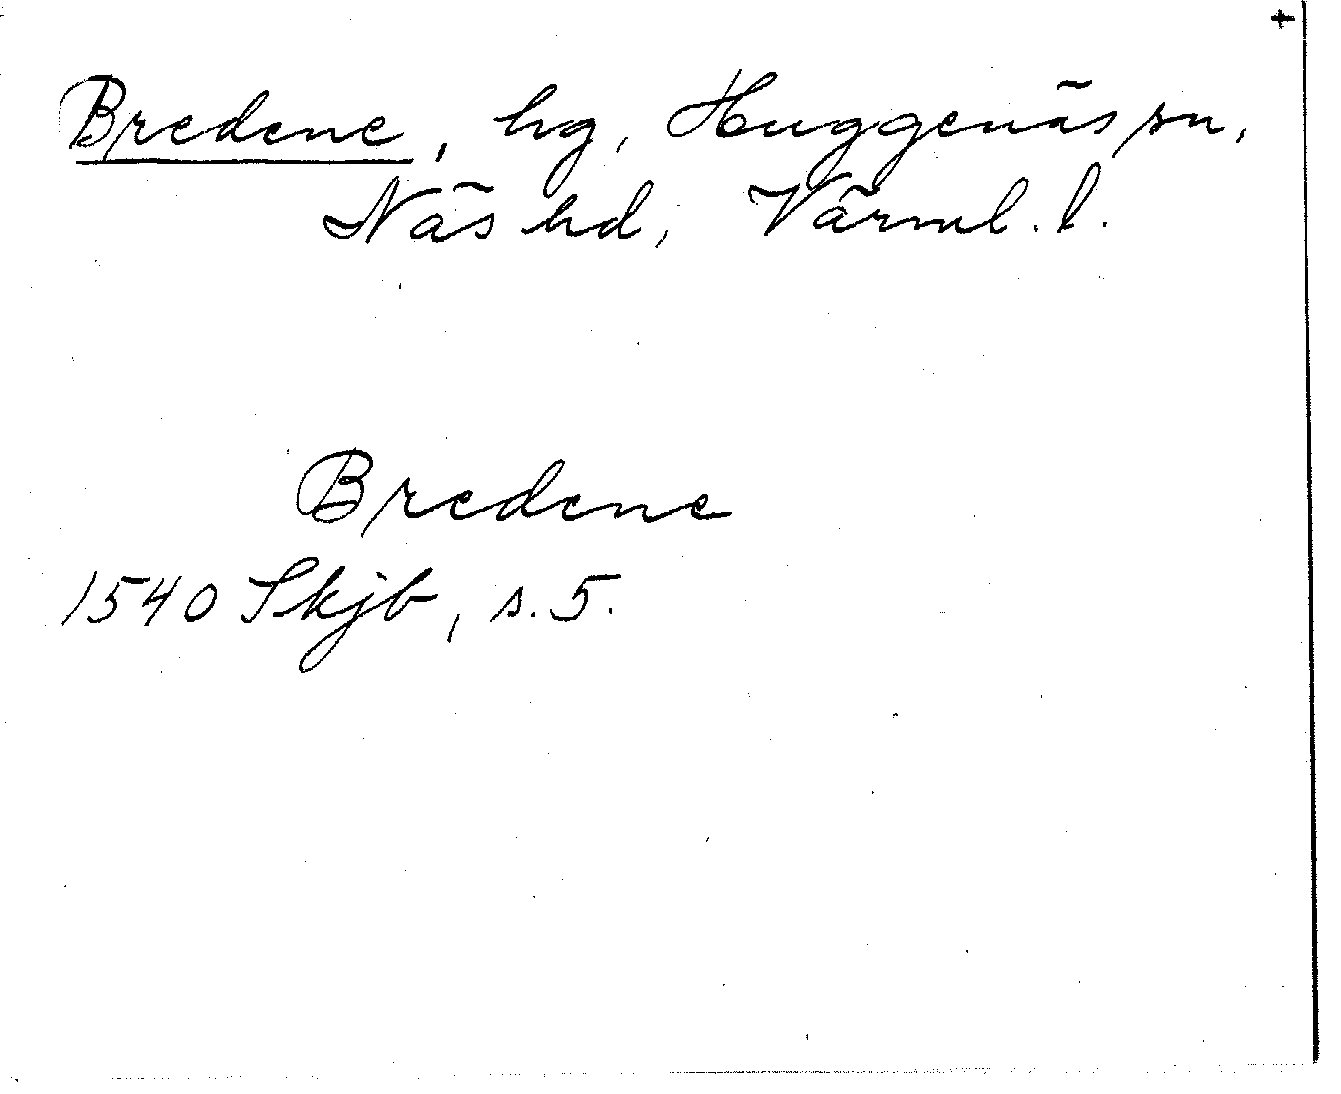 Bredene, hg, Huggenäs sn,
Näs hd, Värml. l.
Bredene
1540 Skjb, s. 5.